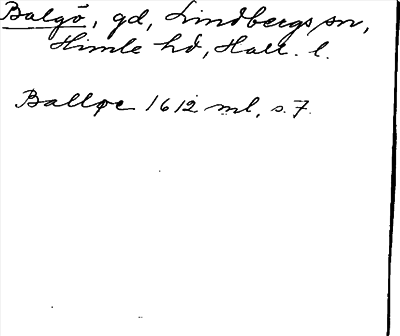 Balgö, gd, Lindbergs sn,
Himle hd, Hall. l.
Balløe 1612 ml, s. 7.